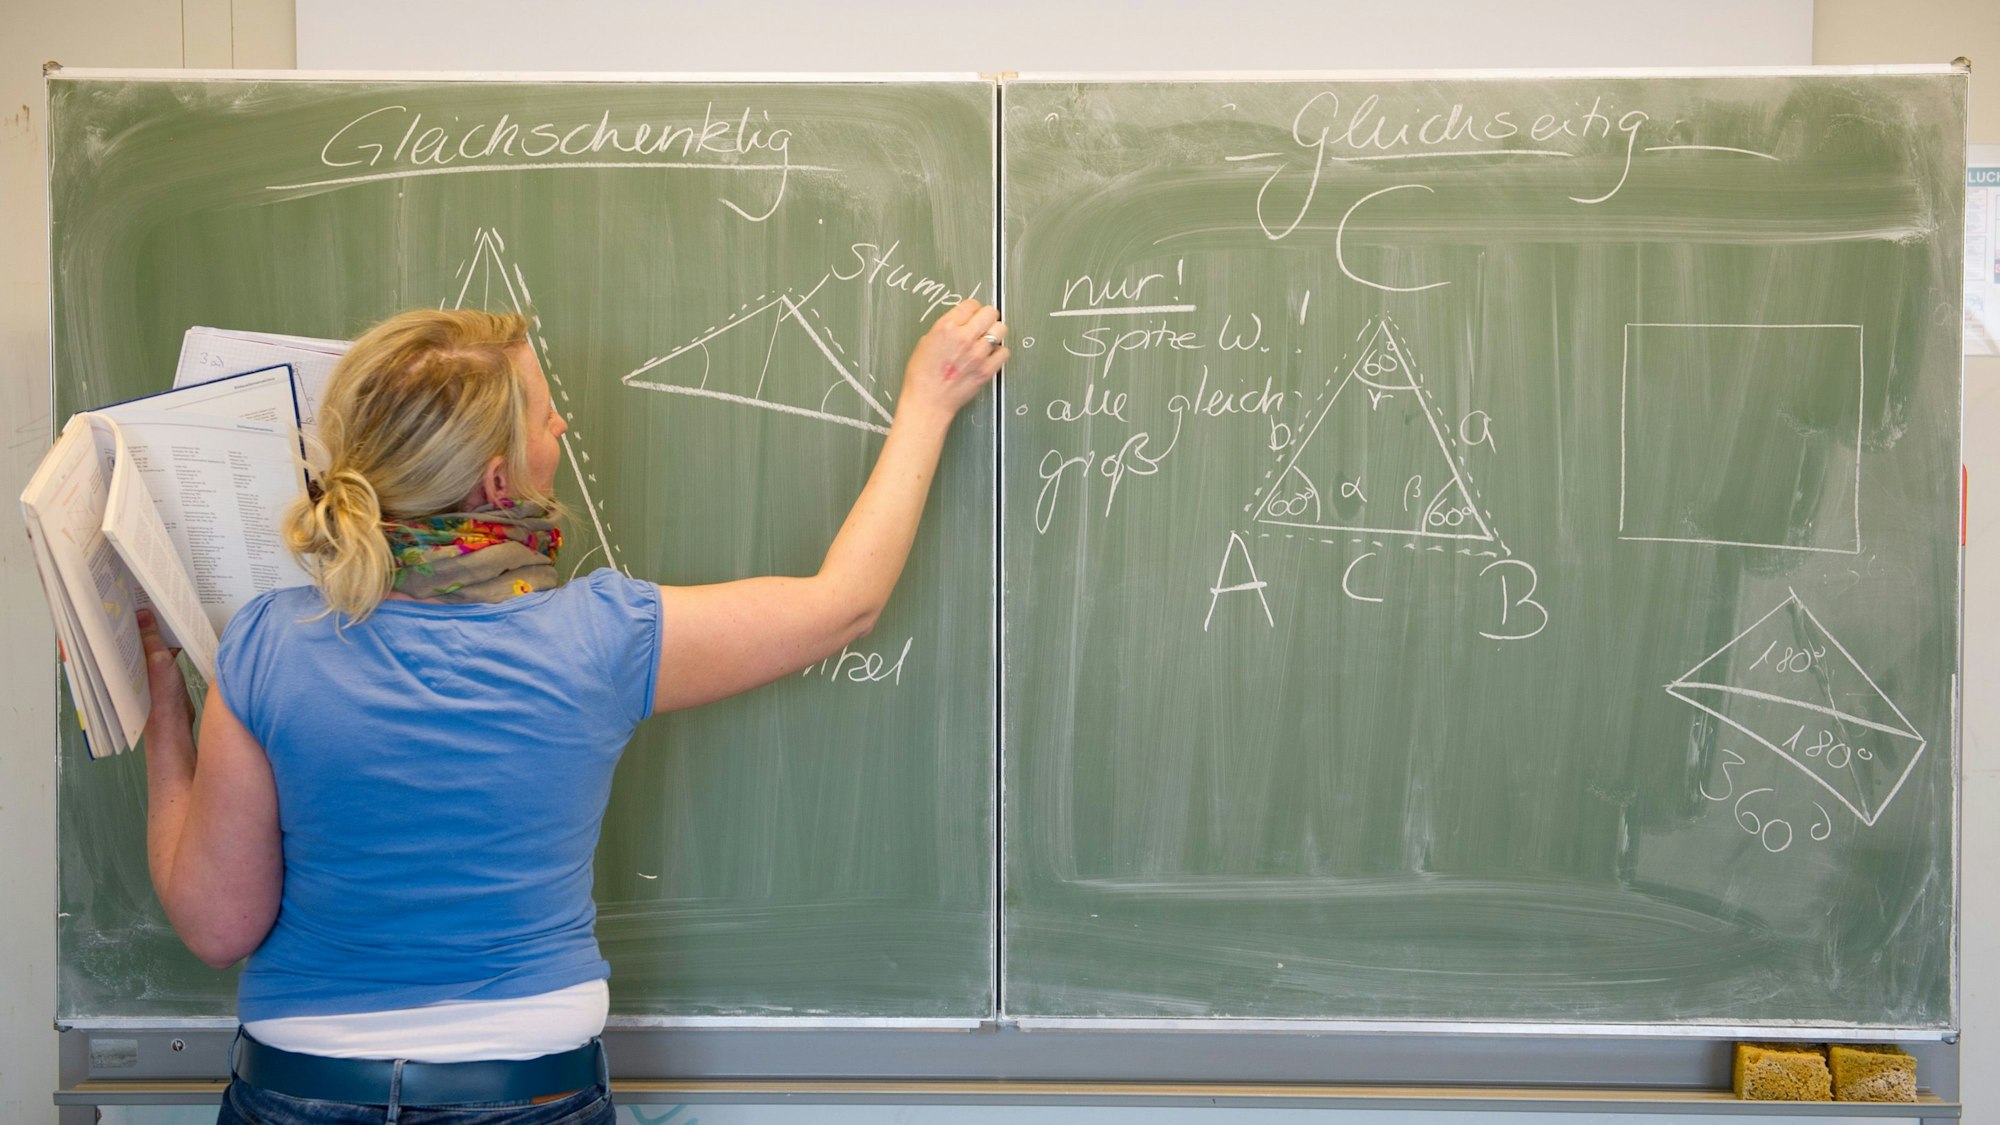 Gleichschenklig
stumpf
Gleichseitig
C
nur!
spitze W. !
alle gleich
groß
60°
γ
b
a
60°
α
β
60°
A
c
B
180°
180°
360°
LUCH